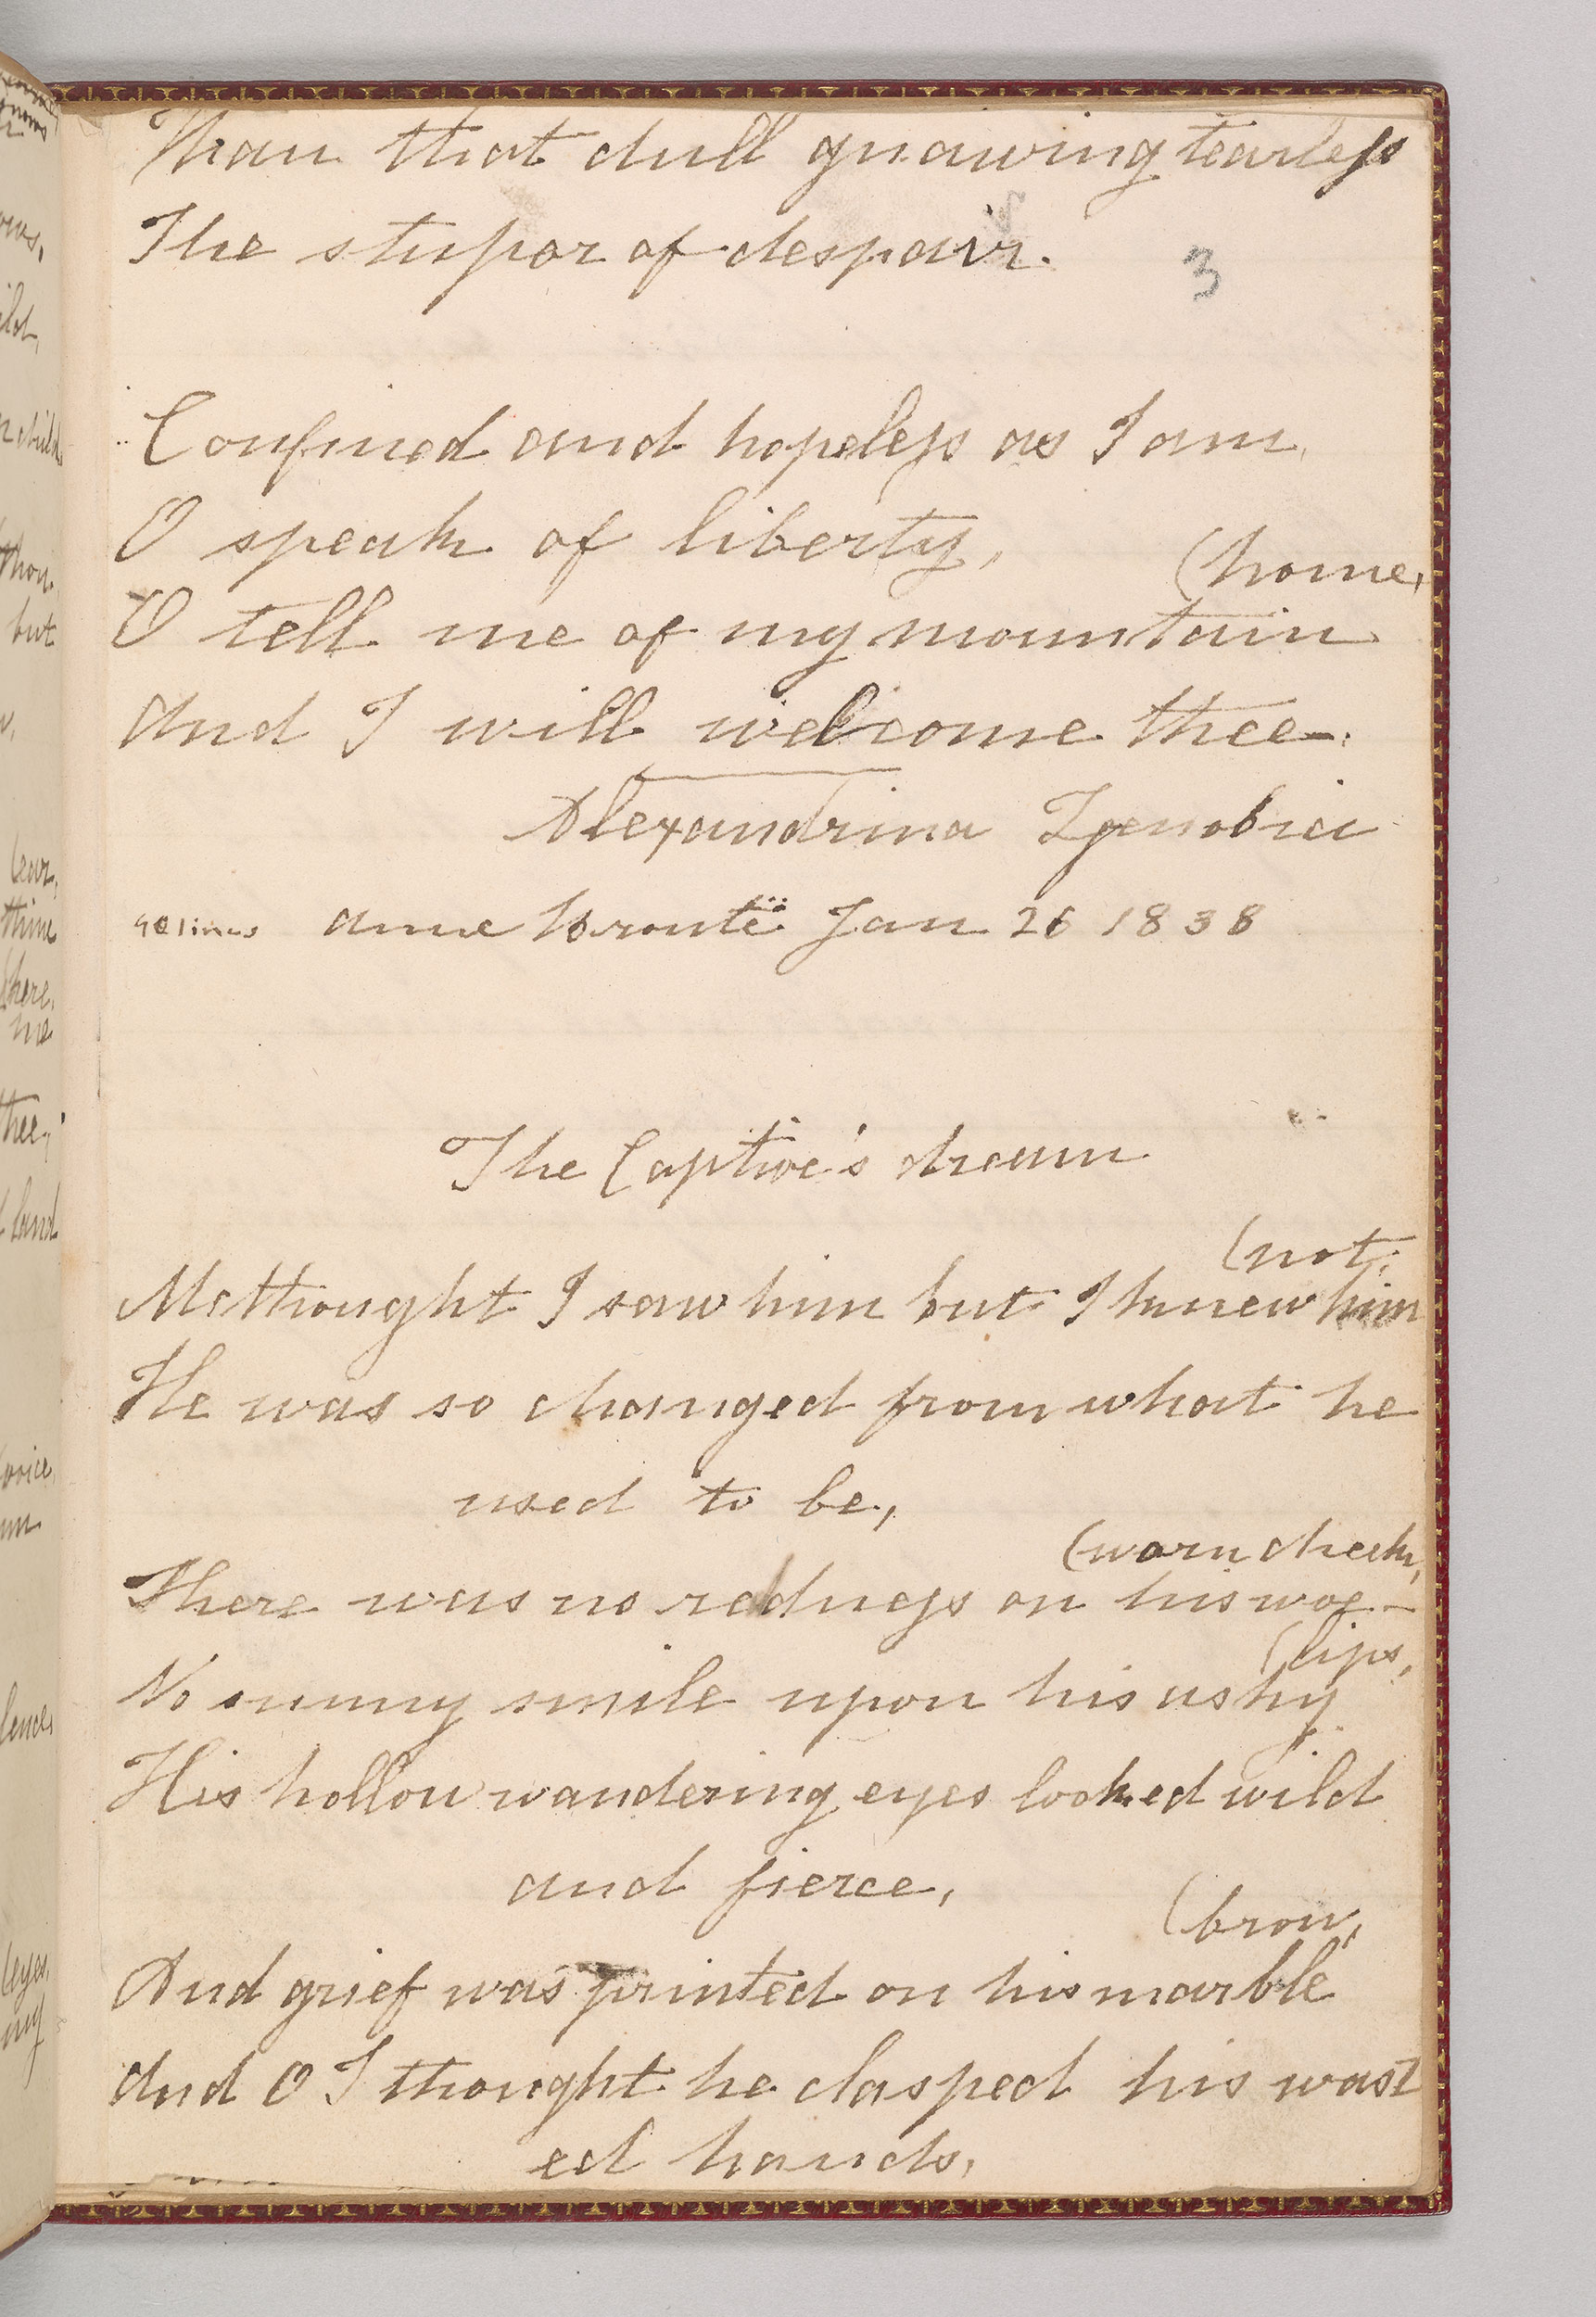 Than that dull gnawing tearless
The stupor of despair.
3
Confined and hopeless as I am,
O speak of liberty,
(home,
O tell me of my mountain
And I will welcome thee—.
Alexandrina Zenobia
lines Anne Brontë Jan 26 1838
The Captive's dream
(not,
Methought I saw him but I knew him
He was so changed from what he
used to be,
(worn cheek,
There was no redness on his woe-
(lips,
No sunny smile upon his ashy
His hollow wandering eyes looked wild
and fierce,
(brow,
And grief was printed on his marble
And O I thought he clasped his wast
ed hands,